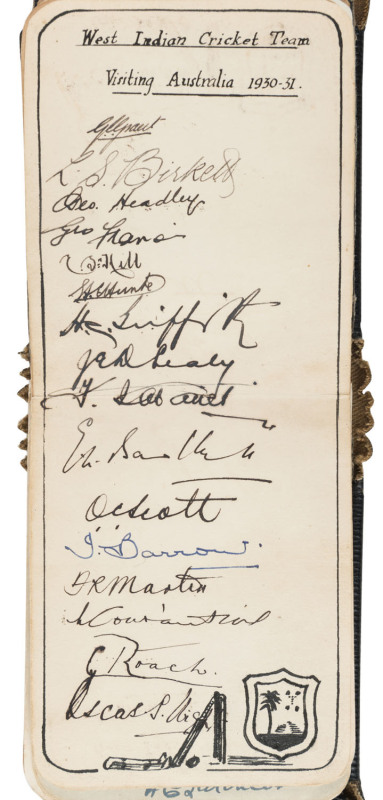 West Indian Cricket Team
Visiting Australia 1930-31.
G.C. Grant
L. S. Birkett
Geo. Headley
Geo Francis
E.A.C. Hunte
H. C. Griffith
J E D Sealy
F. I. de Caires
E. L. Bartlett
O C Scott
I. Barrow.
F R Martin
L Constantine
C. Roach.
Oscar S. Wight